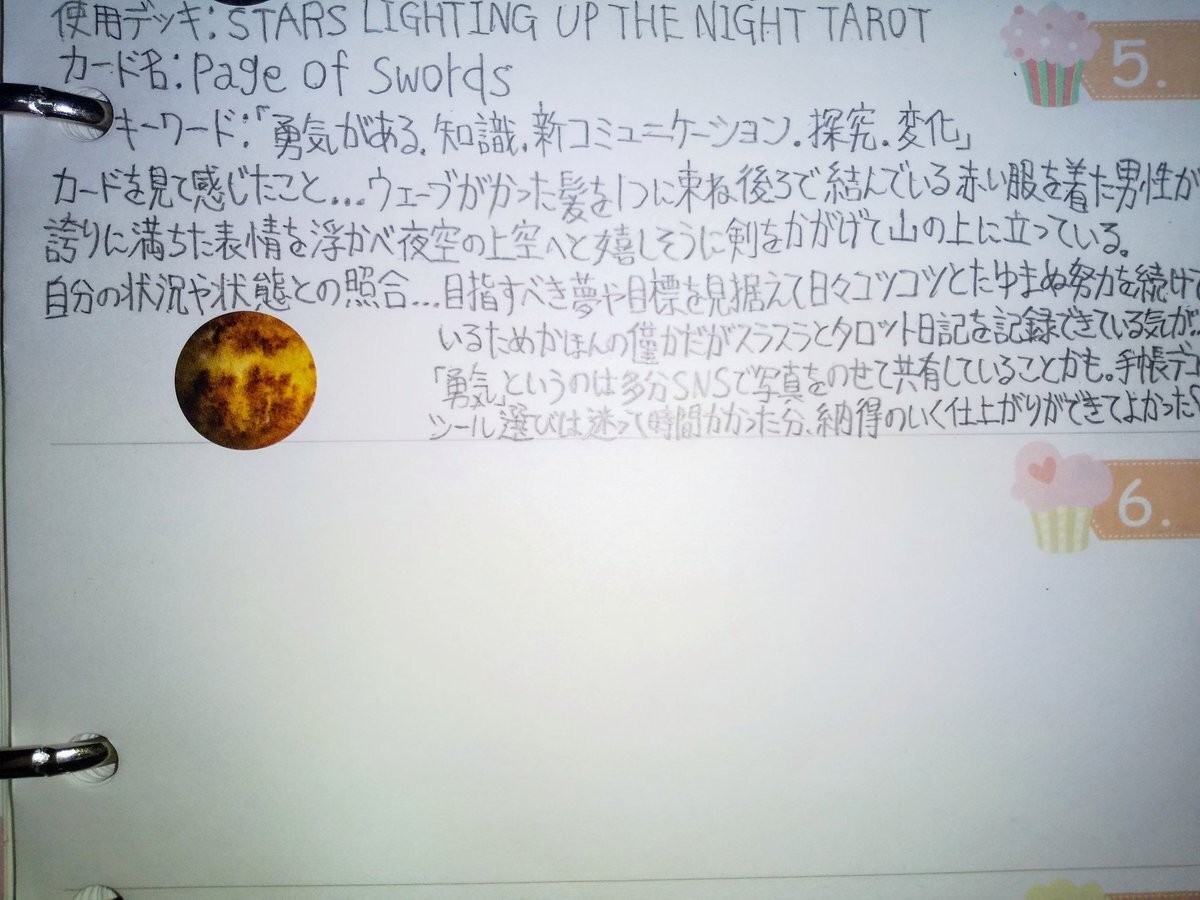 使用デッキ:STARS LIGHTING UP THE NIGHT TAROT
5.
カード名:Page Of Swords
キーワード:「勇気がある.知識.新コミュニケーション.探究.変化」
カードを見て感じたこと...ウェーブがかった髪を1つに束ね後ろで結んでいる赤い服を着た男性が
誇りに満ちた表情を浮かべ夜空の上空へと嬉しそうに剣をかがげて山の上に立っている。
自分の状況や状態との照合...目指すべき夢や目標を見据えて日々コツコツとたゆまぬ努力を続けて
いるためかほんの僅かだがスラスラとタロット日記を記録できている気が
「勇気」というのは多分SNSで写真をのせて共有していることかも。手帳デコ
ツール選びは迷って時間かかった分、納得のいく仕上がりができてよかった
6.